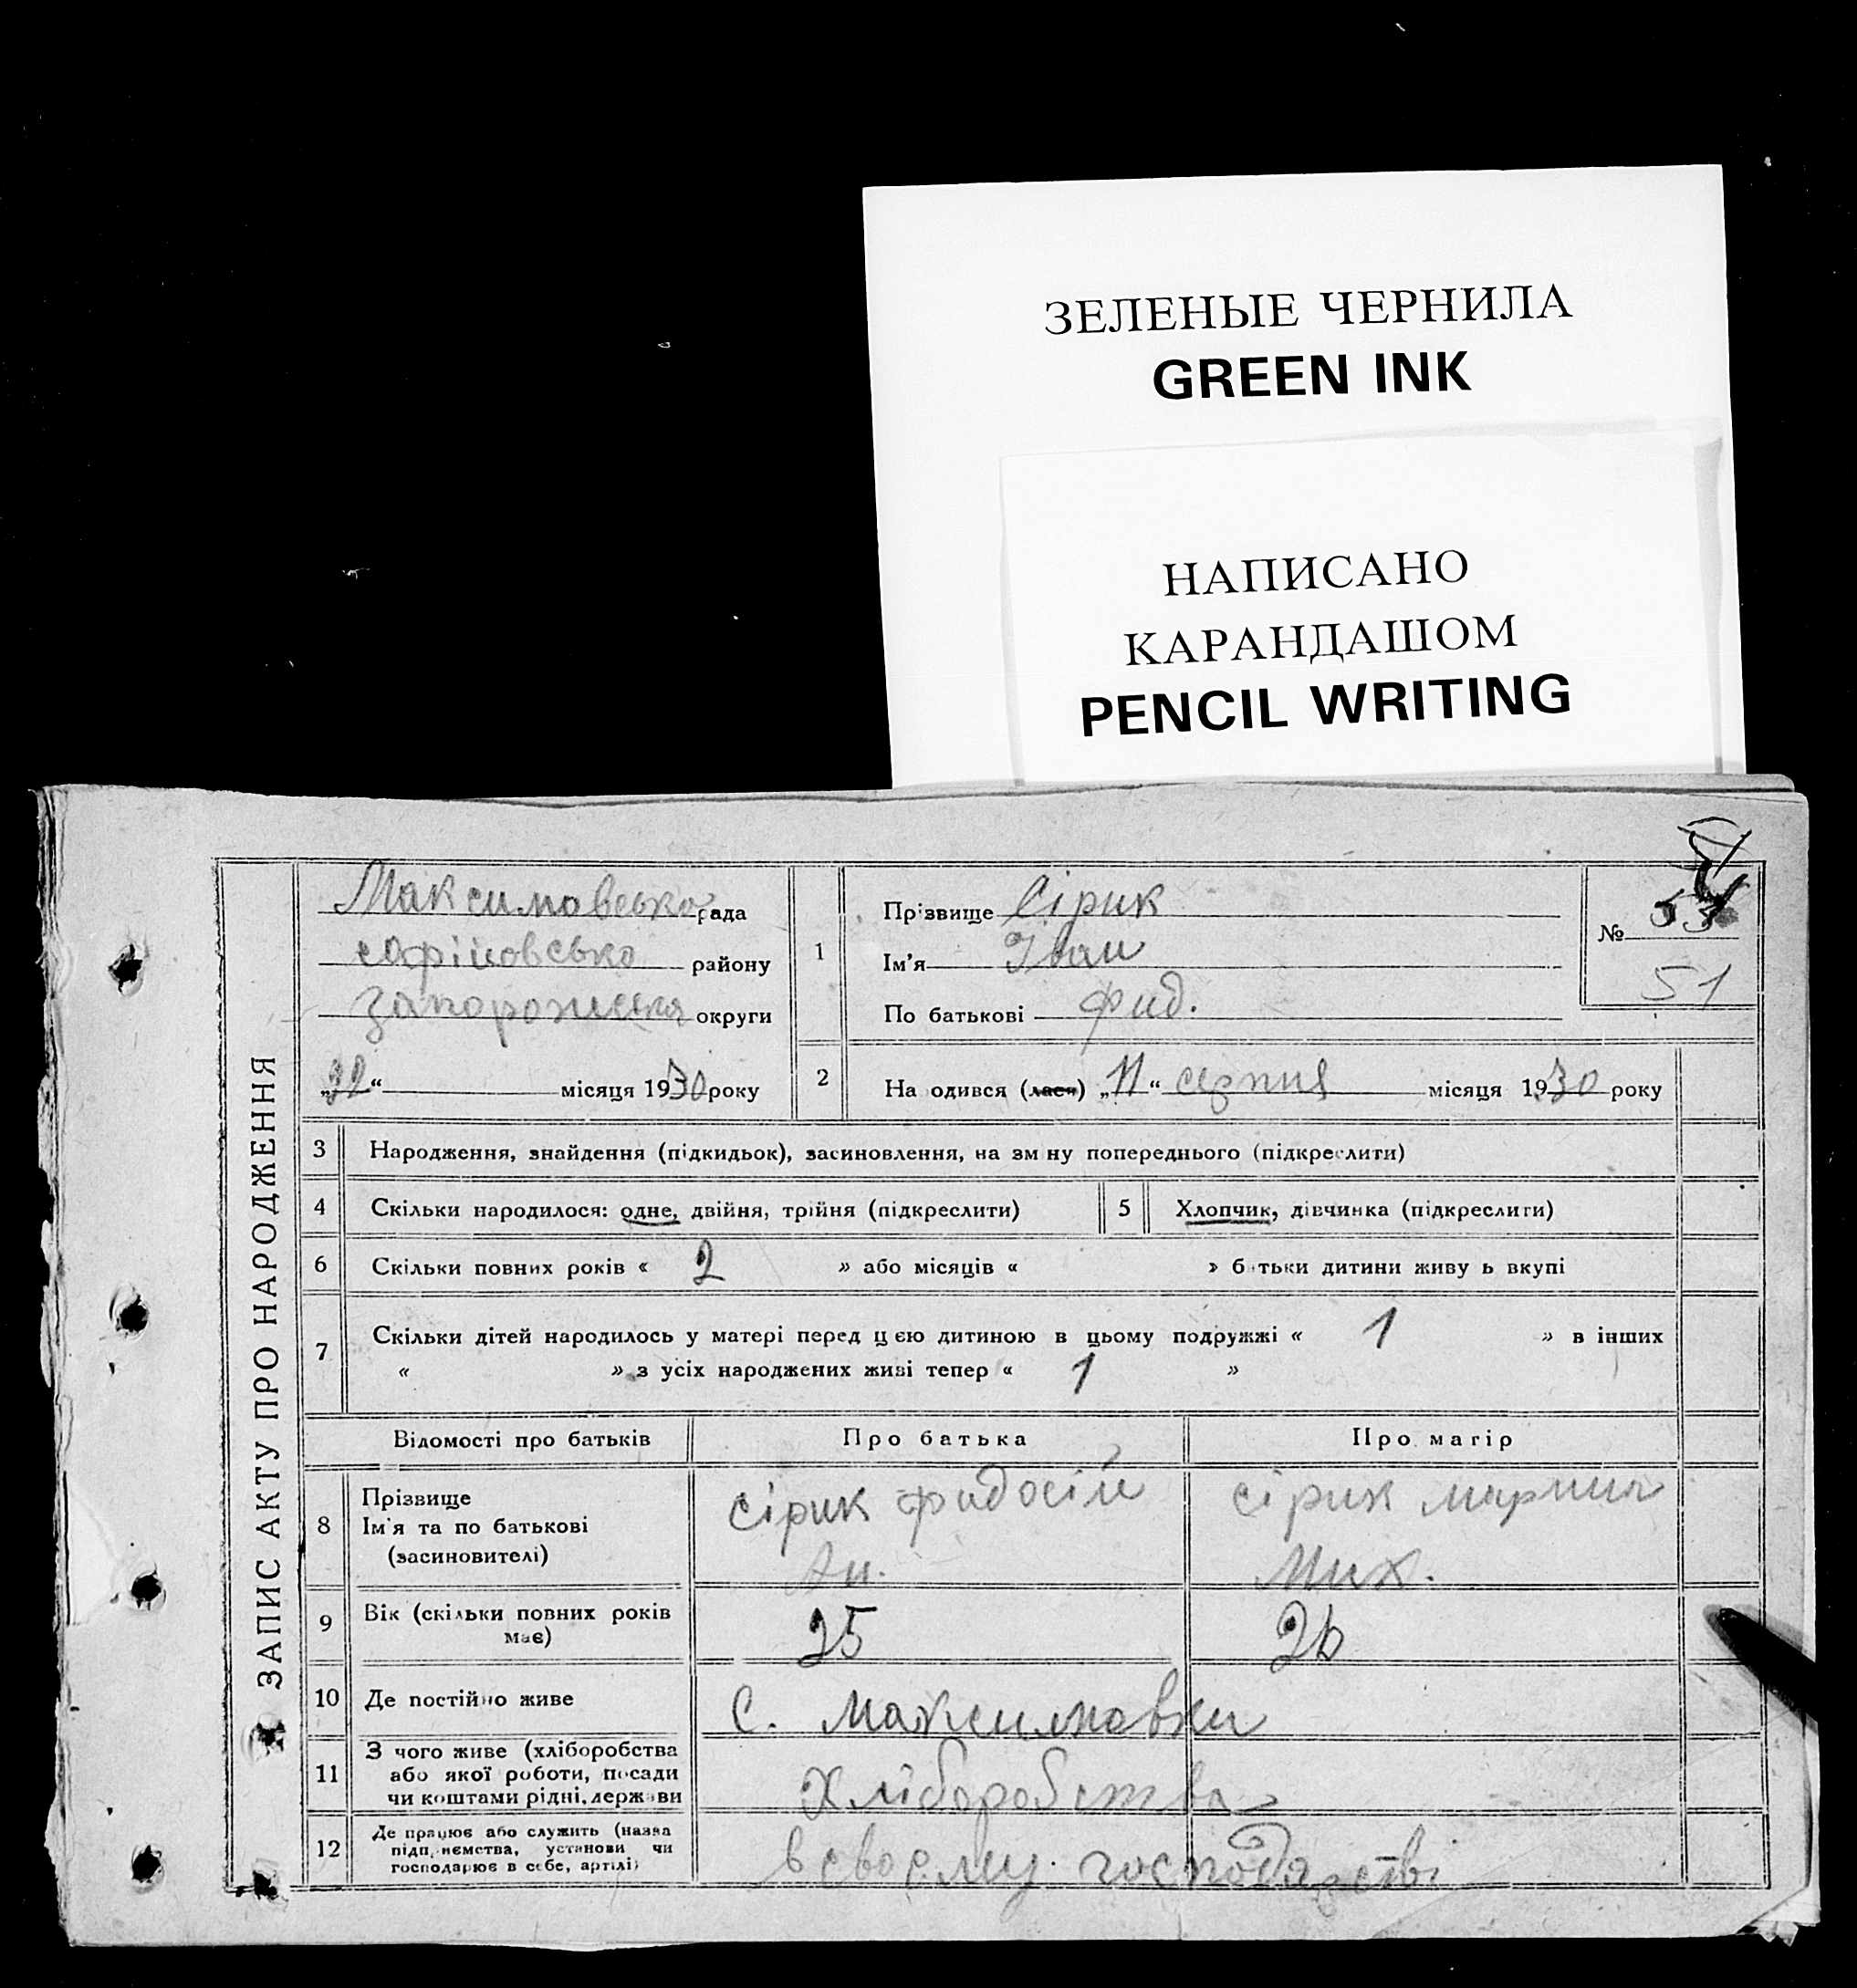 ЗЕЛЕНЫЕ ЧЕРНИЛА
GREEN INK
НАПИСАНО
КАРАНДАШОМ
PENCIL WRITING
ЗАПИС АКТУ ПРО НАРОДЖЕННЯ
Максимовсько рада
софіїовсько району
Запорожжя округи
місяця 1930 року
1
Прізвище Сірик
Ім'я Іван
По батькові Фид.
№
51
2
На одився (лася) „11“ серпня місяця 1930 року
3 Народження, знайдення (підкидьок), засиновлення, на зм ну попереднього (підкреслити)
4 Скільки народилося: одне, двійня, трійня (підкреслити) 5 Хлопчик, дівчинка (підкреслити)
6 Скільки повних років « 2 » або місяців « » б тьки дитини живу ь вкупі
7 Скільки дітей народилось у матері перед цією дитиною в цьому подружжі « 1 » в інших
« » з усіх народжених живі тепер « 1 »
Відомості про батьків Про батька Про матір
8 Прізвище
Ім'я та по батькові
(засиновителі)
Сірик Фидосій
Ан.
Сірик Марина
Мих.
9 Вік (скільки повних років має) 25 26
10 Де постійно живе с. Максимовки
11 З чого живе (хліборобства
або якої роботи, посади
чи коштами рідні, держави
Хліборобства
12 Де працює або служить (назва
підприємства, установи чи
господарює в себе, артілі)
в своєму господарстві